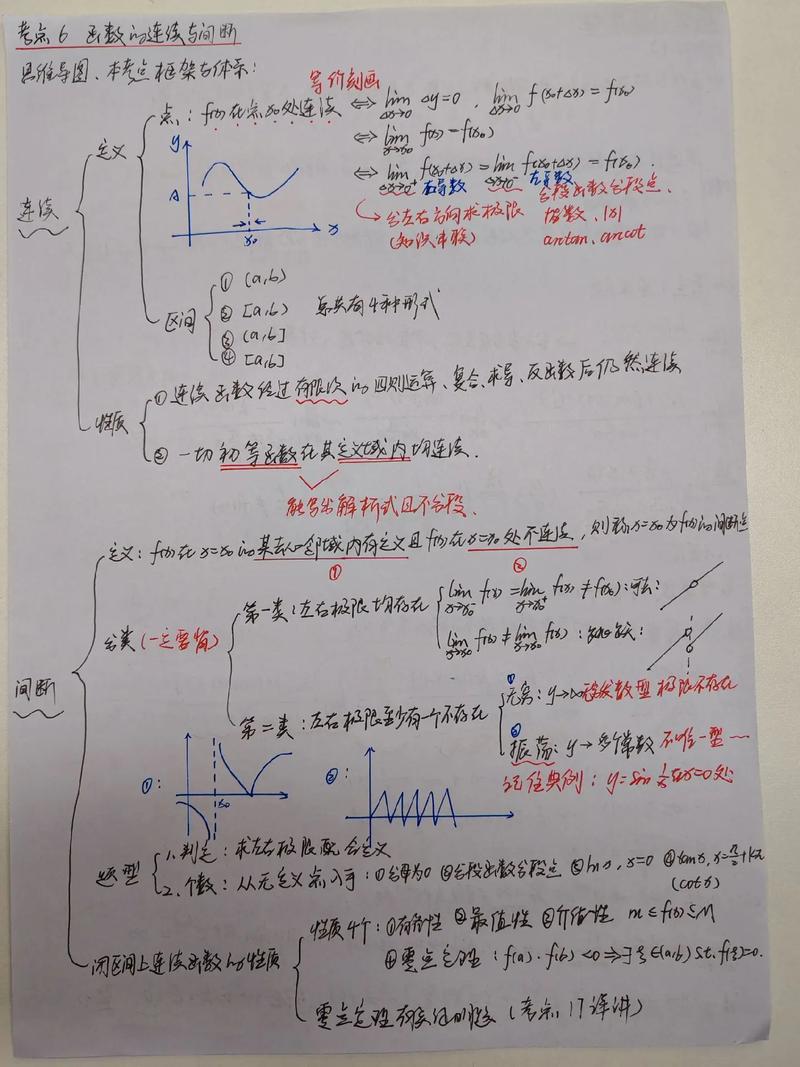 考点6 函数的连续与间断
思维导图、本考点框架与体系：
等价刻画
连续
定义
点：f(x)在点x₀处连续 ⇔ lim Δx→0 Δy=0 , lim Δx→0 f(x₀+Δx)=f(x₀)
⇔ lim x→x₀ f(x)=f(x₀)
⇔ lim Δx→0⁺ f(x₀+Δx) = lim Δx→0⁻ f(x₀+Δx) = f(x₀).
右导数 左导数
分左右方向求极限
(知识串联)
分段函数分段点、
指数、|x|
arctan、arccot
y
A
x₀
x
区间
① (a,b)
② [a,b) 总共有4种形式
③ (a,b]
④ [a,b]
性质
① 连续函数经过有限次的四则运算、复合、求导、反函数后仍然连续
② 一切初等函数在其定义域内均连续.
能写出解析式且不分段、
间断
定义：f(x)在x=x₀的某去心邻域内有定义且f(x)在x=x₀处不连续，则称x=x₀为f(x)的间断点
① ②
分类(一定要背)
第一类：左右极限均存在
lim x→x₀⁻ f(x) = lim x→x₀⁺ f(x) ≠ f(x₀)：可去：
lim x→x₀⁻ f(x) ≠ lim x→x₀⁺ f(x)：跳跃：
第二类：左右极限至少有一个不存在
① 无穷：y→∞ 发散型 极限不存在
② 振荡：y→多个常数 不唯一型
记住典例：y=sin 1/x 在x=0处
①： x₀
②：
题型
1、判定：求左右极限配合定义
2、个数：从无定义点入手：①分母为0 ②分段函数分段点 ③ln x, x=0 ④tan x, x=π/2+kπ
(cot x)
闭区间上连续函数的性质
性质4个：①有界性 ②最值性 ③介值性 m≤f(x)≤M
④零点定理：f(a)·f(b)<0⇒∃ξ∈(a,b) s.t. f(ξ)=0.
零点定理 (考点17详讲)